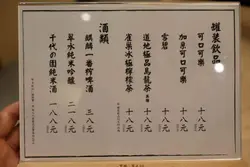 罐裝飲品
可口可樂 十八元
加系可口可樂 十八元
雪碧 十八元
道地極品烏龍茶 十八元
崔巢冰極檸檬茶 十八元
酒類
麒麟一番榨啤酒 三八元
翠水純米吟釀 二一八元
千代の園純米酒 一八八元